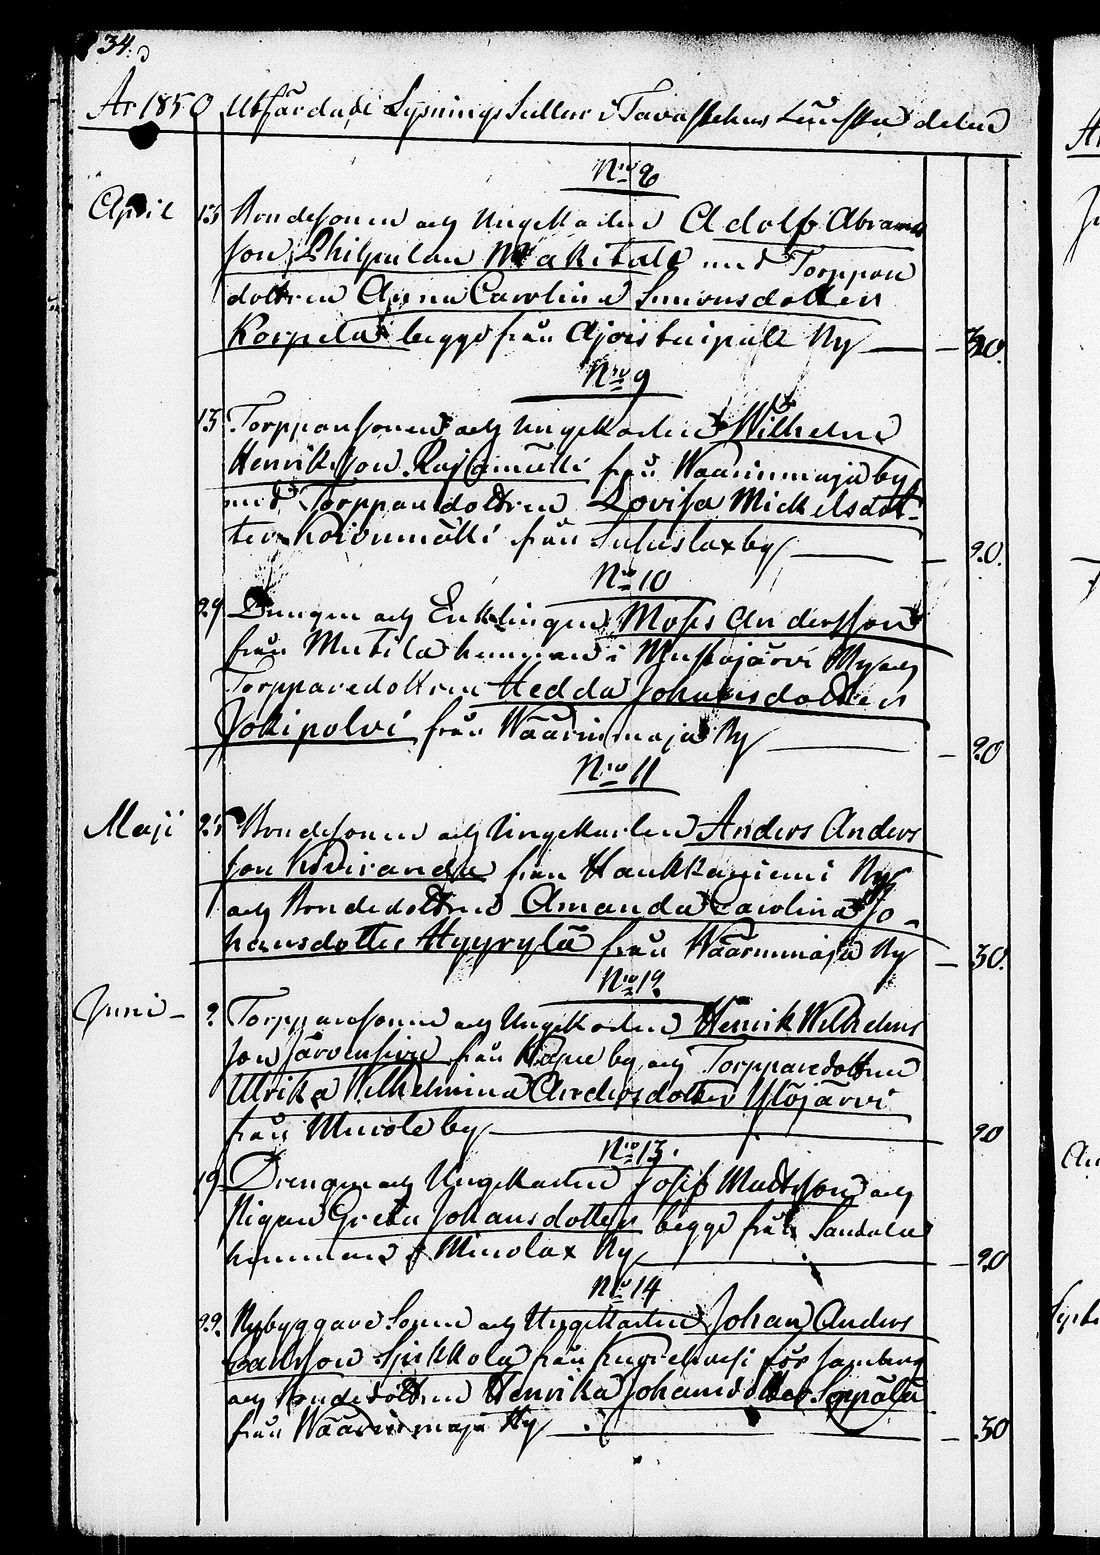 34.
År 1850 Utfärdade Lysnings Sedlar i Tavastehus Länska delen
Nro 8
April 13 Bondesonen och Ungekarlen Adolf Abrams
son Philpulan Mäkitalo med Torppare
dottren Anna Carolina Simonsdotter
Korpela begge från by 30.
Nro 9
13 Torpparesonen och Ungekarlen Wilhelm
Henriksson Rajamäki från Wäärinmaja by
med Torppare dottren Lovisa Mickelsdot-
ter Koivumäki från by 20.
Nro 10
29 Drengen och Enklingen Moses Andersson
från Muhila hemman i Mustajärvi By och
Torpparedottren Hedda Johansdotter
Jokipolvi från Wäärinmaja By 20
Nro 11
Maji 25 Bondesonen och Ungekarlen Anders Anders
son Kiviranda från Haukkaniemi By
och Bondedottren Amanda Carolina Jo-
hansdotter Hyyrylä från Wäärinmaja By 30.
Nro 12
Juni 2 Torpparesonen och Ungekarlen Henrik Wilhelms
son Järvensivu från by och Torpparedottren
Ulrika Wilhelmina Andersdotter Ylöjärvi
från Murole by 20
Nro 13.
19 Drengen och Ungekarlen Josef Mattsson och
Pigan Greta Johansdotter begge från
hemman i Minolax By 20
Nro 14
22. Nybyggare Sonen och Ungekarlen Johan Anders
son Sikkola från för
och Bondedottren Henrika Johansdotter Seppälä
från Wäärinmaja By 30